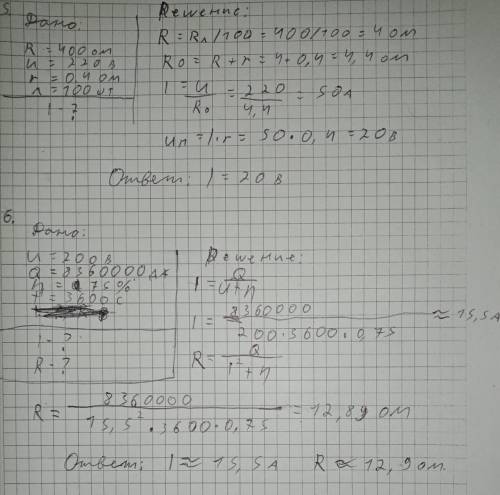 5.
Дано:
R = 400 ом
U = 220 В
r = 0,4 ом
n = 100 шт
I - ?
Решение:
R = Rл/100 = 400/100 = 4 ом
R₀ = R + r = 4 + 0,4 = 4,4 ом
I = U/R₀ = 220/4,4 = 50 А
Uп = I · r = 50 · 0,4 = 20 В
Ответ: I = 20 В
6.
Дано:
U = 200 В
Q = 8360000 Дж
η = 75%
t = 3600 с
I - ?
R - ?
Решение:
I = Q/Utη
I = 8360000/200·3600·0,75 ≈ 15,5 А
R = Q/I²tη
R = 8360000/15,5²·3600·0,75 = 12,89 ом
Ответ: I ≈ 15,5 А R ≈ 12,9 ом.